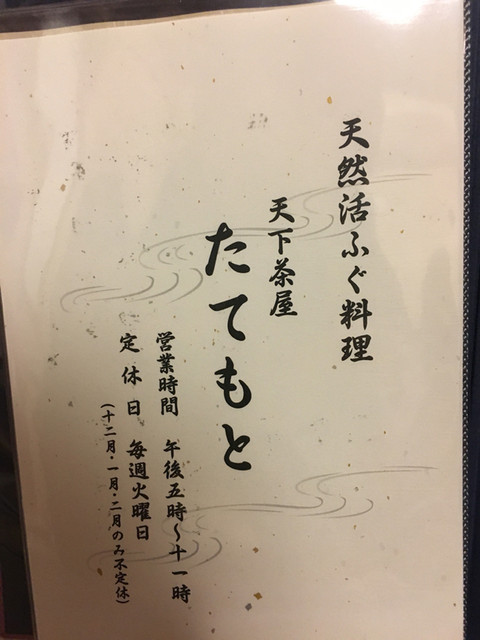 天然活ふぐ料理
天下茶屋
たてもと
営業時間 午後五時～十一時
定休日 毎週火曜日
(十二月・一月・二月のみ不定休)